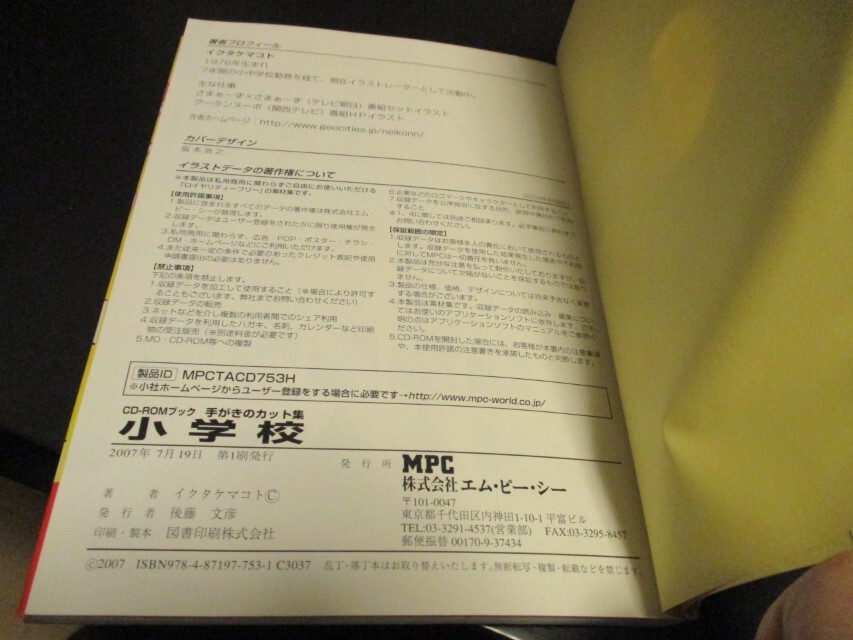 著者プロフィール
イクタケマコト
1976年生まれ
7年間の小中学校勤務を経て、現在イラストレーターとして活動中。
主な仕事
さまぁーず×さまぁーず（テレビ朝日）番組セットイラスト
グータンヌーボ（関西テレビ）番組HPイラスト
作者ホームページ：http://www.geocities.jp/neikonn/
カバーデザイン
イラストデータの著作権について
※本製品は私用商用に関わらずご自由にお使いいただける
「ロイヤリティーフリー」の素材集です。
【使用許諾事項】
1.製品に含まれるすべてのデータの著作権は株式会社エム・
ピー・シーが管理します。
2.収録データはユーザー登録をされた方に限り使用権が発生
します。
3.私用商用に関わらず、広告・POP・ポスター・チラシ・
DM・ホームページなどにご利用いただけます。
4.また従来一定の条件で必要のあったクレジット表記や使用
申請書提出の必要はありません。
【禁止事項】
下記の事項を禁止します。
1.収録データを加工して使用すること（※場合により許可す
ることもございます。弊社までお問い合わせください）
2.収録データの転売
3.ネットなどを介し複数の利用者間でのシェア利用
4.収録データを利用したハガキ、名刺、カレンダーなど印刷
物の受注販売（※別途料金が必要です）
5.MO・CD-ROM等への複製
6.企業などのロゴマークやキャラクターとして利用すること
7.収録データを公序良俗に反する目的、
すること
※1、4に関しては別途ご相談承ります。必ず事前に弊社まで
お問い合わせください。
【保証範囲の限定】
1.収録データはお客様本人の責任において使用されるものと
します。収録データを使用した結果発生した損害や不利益
に対してMPCは一切責任を負いません。
2.本製品は充分な注意を払って制作いたしておりますが、収
録データについて欠陥がないことを保証するものではあり
ません。
3.製品の仕様、価格、デザインについては将来予告なく変更
する場合がございます。
4.本製品は素材集です。収録データの読み込み・編集につい
てはお使いのアプリケーションソフトに依存します。ご不
明の点はアプリケーションソフトのマニュアルをご参照く
ださい。
5.CD-ROMを開封した場合には、お客様が本案内の注意事項
や、本使用許諾の注意書きを承諾したものと判断します。
製品ID MPCTACD753H
※小社ホームページからユーザー登録をする場合に必要です→http://www.mpc-world.co.jp/
CD-ROMブック 手がきのカット集
小学校
2007年 7月19日 第1刷発行
著者 イクタケマコトⒸ
発行者 後藤 文彦
印刷・製本 図書印刷株式会社
発行所 MPC
株式会社 エム・ピー・シー
〒101-0047
東京都千代田区内神田1-10-1 平富ビル
TEL:03-3291-4537(営業部) FAX:03-3295-8457
郵便振替 00170-9-37434
Ⓒ2007 ISBN978-4-87197-753-1 C3037 乱丁・落丁本はお取り替えいたします。無断転写・複製・転載などを禁じます。